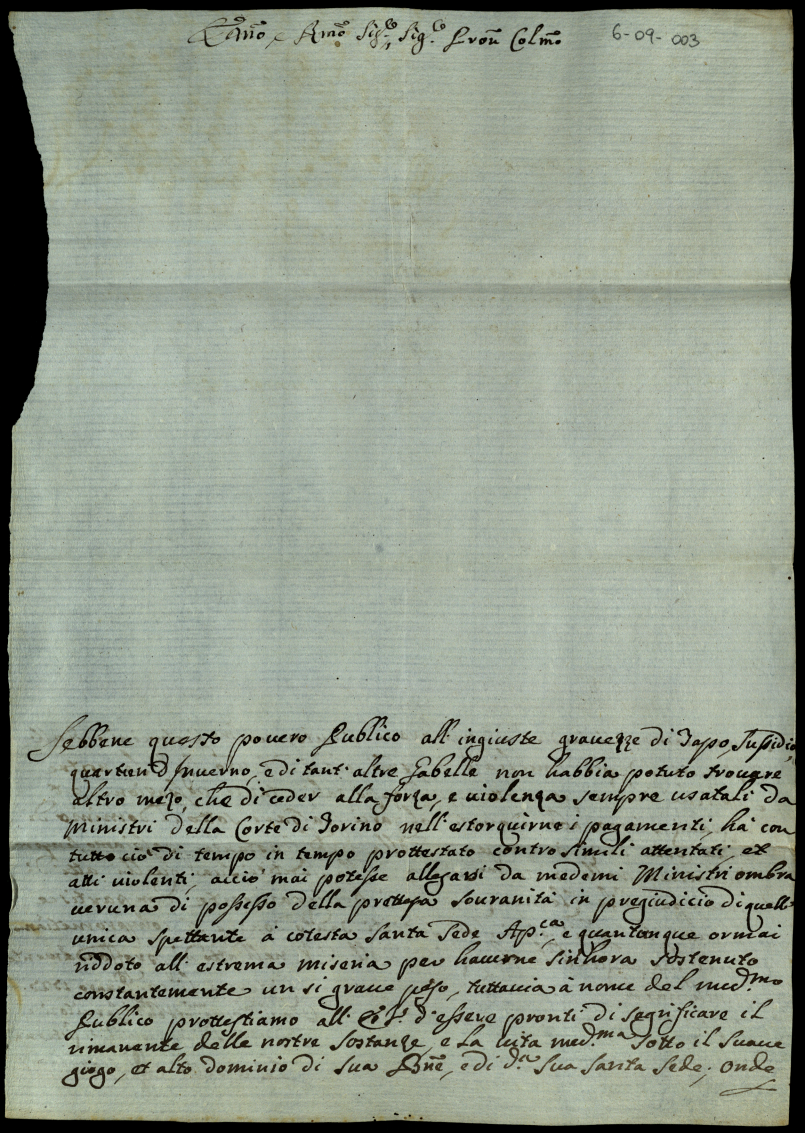 Em̃o e Rmõ Sig.re, Sig.re Prõn Colmõ
6-09-003
Sebbene questo povero Publico all'ingiuste gravezze di Tapo, Susidio,
quartieri d'Inverno, e di tant'altre Gabelle non habbia potuto trovare
altro mezo, che di ceder alla forza, e violenza sempre usatali da
Ministri della Corte di Torino nell'estorquirne i pagamenti, hà con
tutto ciò di tempo in tempo prottestato contro simili attentati, et
atti violenti, acciò mai potesse allegarsi da medemi Ministri ombra
veruna di possesso della pretesa souranità in pregiudicio di quell'
unica spettante à cotesta Santa Sede Ap.ca, e quantunque ormai
riddoto all'estrema miseria per haverne sin'hora sostenuto
constantemente un si grave peso, tuttavia à nome del med.mo
Publico prottestiamo all' d'essere pronti di segrificare il
rimanente delle nostre sostanze, e la vita med.ma sotto il suave
giogo, et alto dominio di sua Bñe, e di d.a sua santa sede; onde